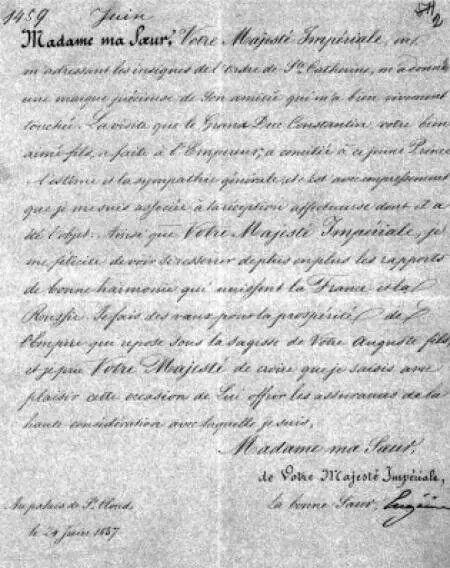 1459 Juin
2
Madame ma Sœur, Votre Majesté Impériale, en
m'adressant les insignes de l'Ordre de Ste Catherine, m'a donné
une marque précieuse de son amitié qui m'a bien vivement
touchée. La visite que le Grand Duc Constantin, votre bien
aimé fils, a faite à l'Empereur, a concilié à ce jeune Prince
l'estime et la sympathie générale, et c'est avec empressement
que je me suis associée à la réception affectueuse dont il a
été l'objet. Ainsi que Votre Majesté Impériale, je
me félicite de voir se resserrer de plus en plus les rapports
de bonne harmonie qui unissent la France et la
Russie. Je fais des vœux pour la prospérité de
l'Empire qui repose sous la sagesse de Votre Auguste fils,
et je prie Votre Majesté de croire que je saisis avec
plaisir cette occasion de Lui offrir les assurances de la
haute considération avec laquelle je suis,
Madame ma Sœur,
de Votre Majesté Impériale,
la bonne Sœur, Eugénie
Au palais de St. Cloud,
le 24 Juin 1857